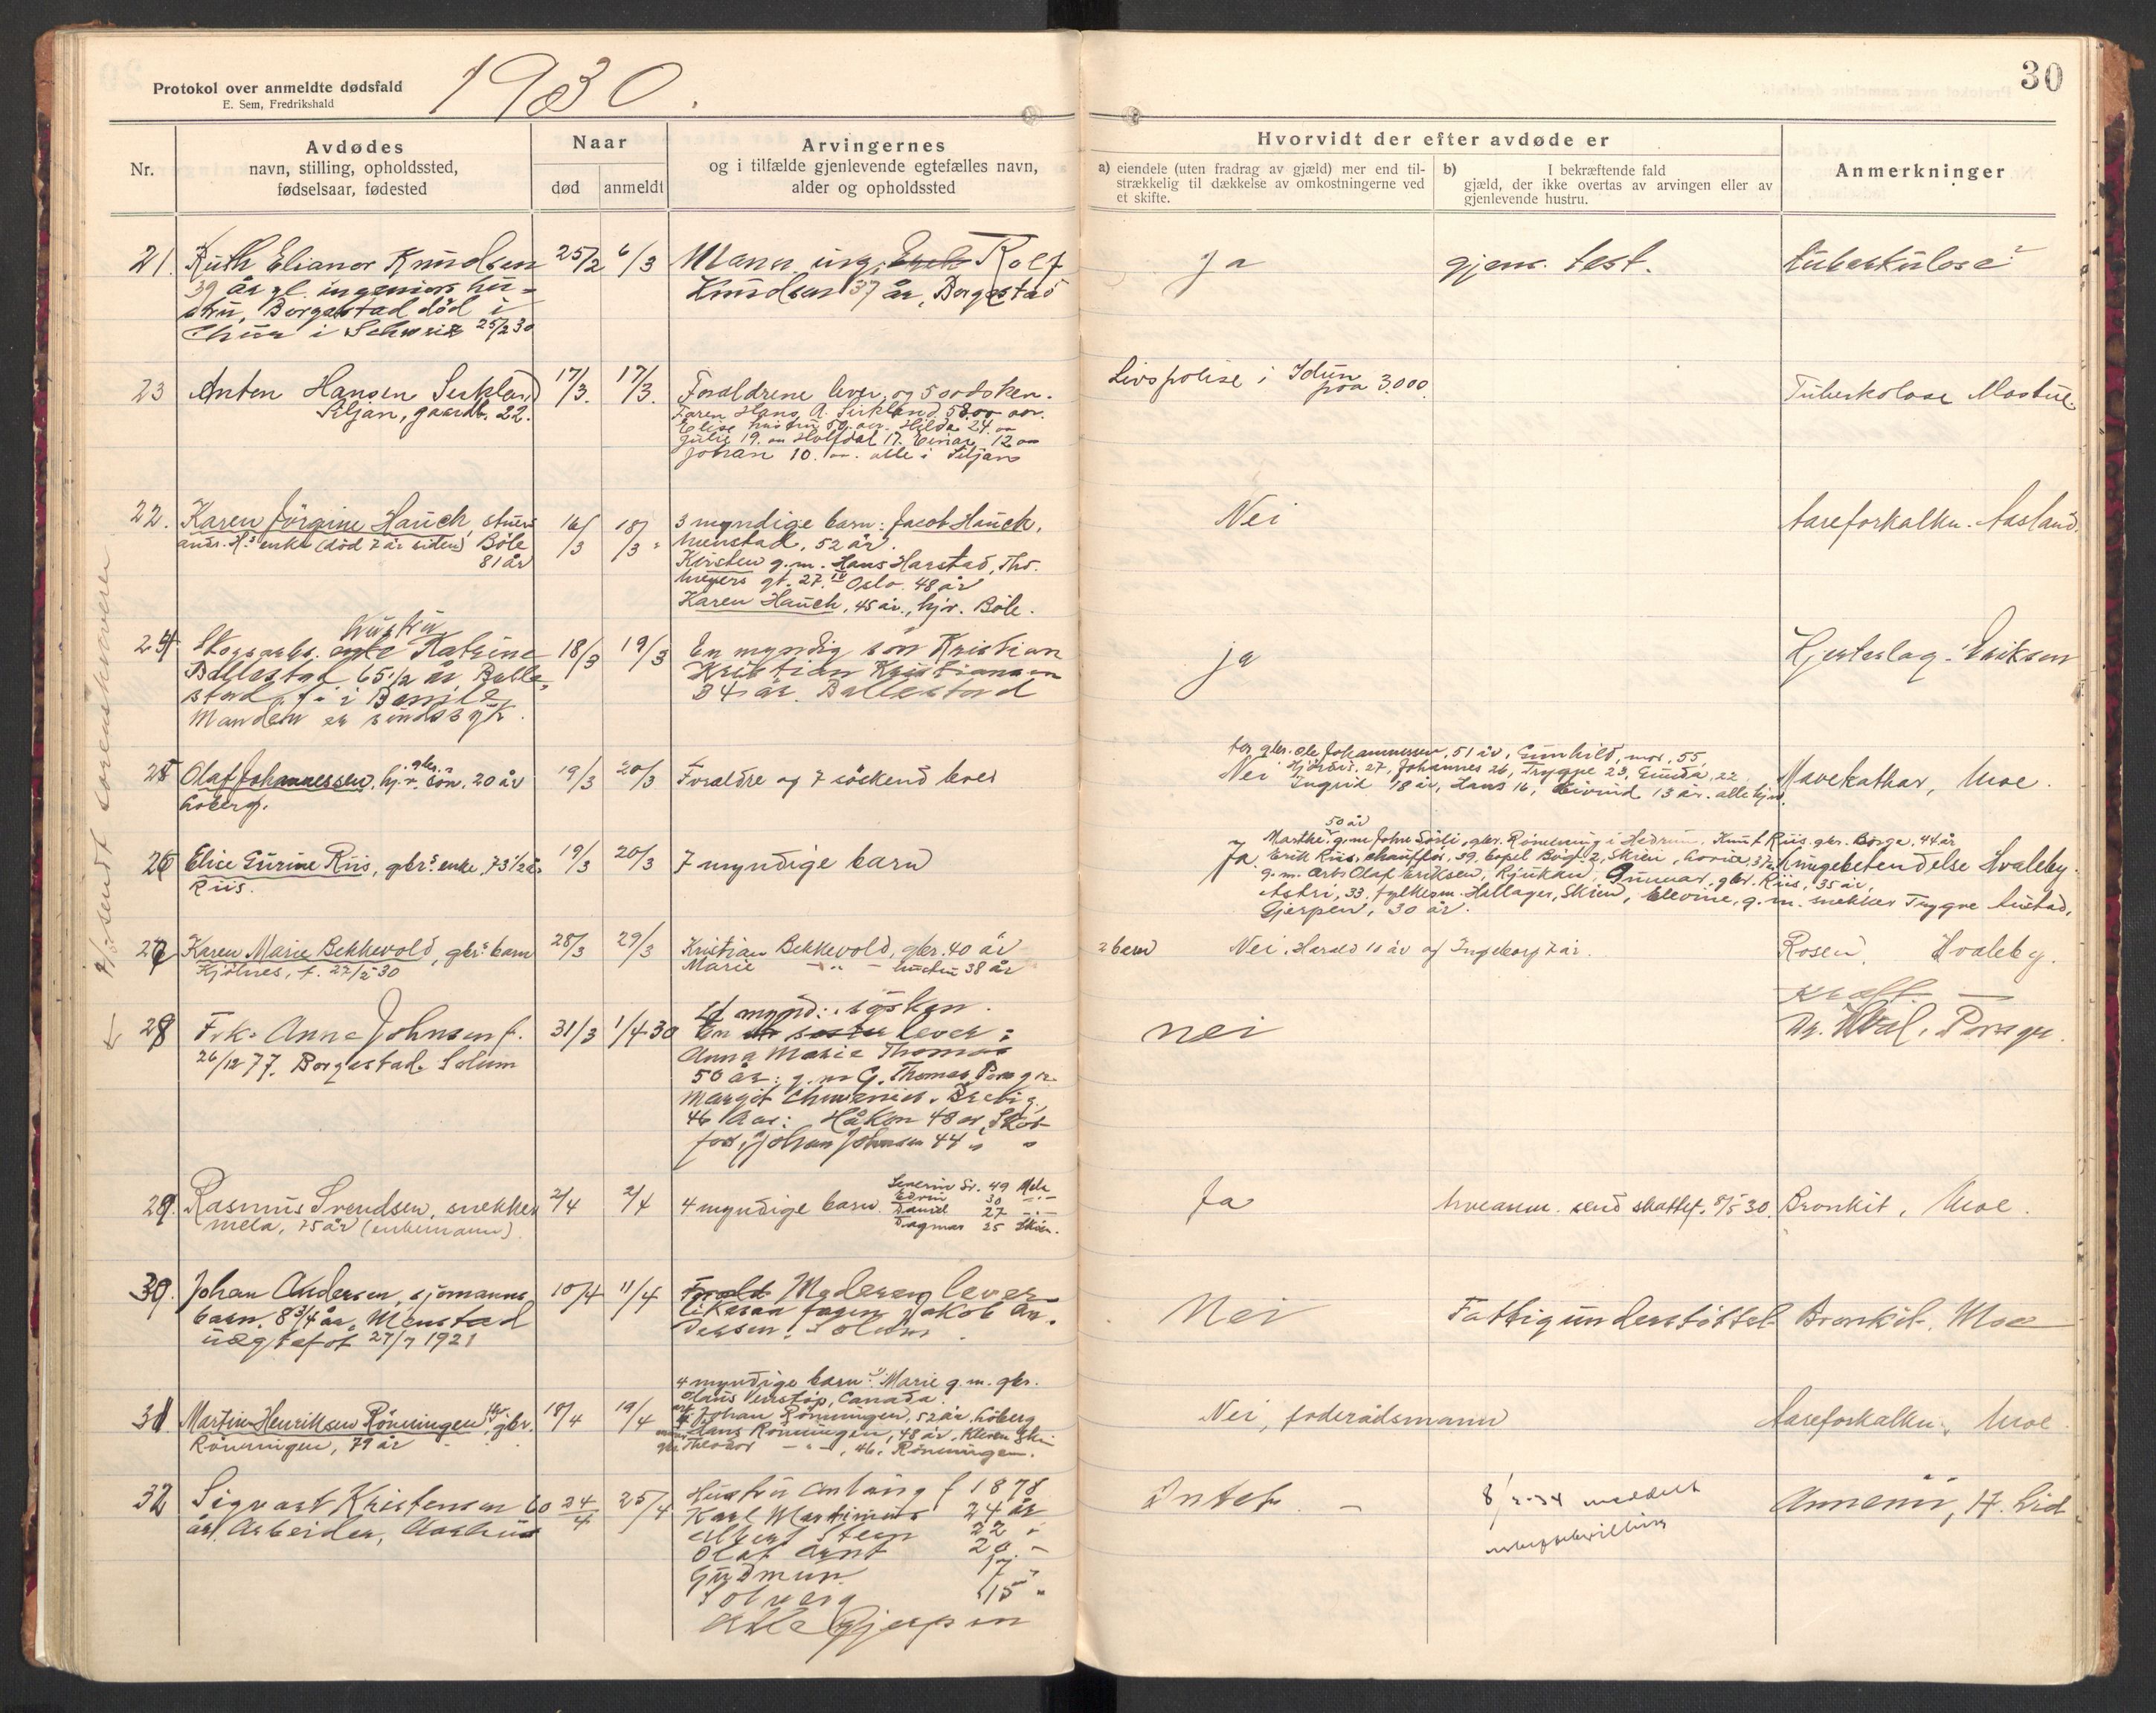 Protokol over anmeldte dødsfald
E. Sem, Fredrikshald
1930.
30
Nr.
Avdødes
navn, stilling, opholdssted,
fødselsaar, fødested
Naar
død
anmeldt
Arvingernes
og i tilfælde gjenlevende egtefælles navn,
alder og opholdssted
Hvorvidt der efter avdøde er
a) eiendele (uten fradrag av gjæld) mer end til-
strækkelig til dækkelse av omkostningerne ved
et skifte.
b) I bekræftende fald
gjæld, der ikke overtas av arvingen eller av
gjenlevende hustru.
Anmerkninger
21. Ruth Elianor Knudsen
39 år gl. ingeniørs hu-
stru, Borgestad död i
Chur i Schweiz 25/2 30
25/2 6/3
Mann ing. Rolf
Knudsen 37 år, Borgestad
Ja
gjens. test.
tuberkulose?
23 Anten Hansen Serkland
Siljan, gaardb. 22.
17/3. 17/3.
Foraldrene lever, og 5 sodsken.
Faren Hans A. Sirkland 58 aar.
Elise hustru 50. aar. Hilda 24.
Julie 19. Halfdal 17. Einar 12
Johan 10. alle i Siljan
Livspolise i Idun
paa 3.000.
Tuberkolose Mostue.
22. Karen Jörgine Hauch, stuer
enke (död 7 år siden) Böle
81 år
16/3 18/3
3 myndige barn: Jacob Hauch,
Menstad, 52 år.
Kirsten g.m. Hans Harstad, Th.
Meyers gt. 27 IV Oslo. 48 år
Karen Hauch, 45 år, hjv. Böle.
Nei
Aareforkalkn. Aasland.
24. Skogsarb. hustru Katrine
Ballestad 65 1/2 år Balle-
stad f. i Bamle
Manden er sindssyk.
18/3 19/3
En myndig sön Kristian
Kristian Kristiansen
34 år Ballestad
ja
Hjerteslag. Eriksen
25 Olaf Johannessen, hj.v. gbr.s sön, 20 år
Løberg.
19/3 20/3
Foraldre og 7 söskend lever
far gbr. Ole Johannessen, 51 år, Gunhild, mor, 55,
Nei Hjördis. 27. Johannes 26, Trygve 23, Gunda, 22
Ingrid 18 år, Hans 16, Eivind 13 år. alle hjv.
Mavekathar, Moe.
26 Elise Gurine Riis, gbrs enke, 73 1/2 år
Riis.
19/3 20/3
7 myndige barn
50 år
Marthe g.m. Johan Sörli, gbr. Rönnning i Hedrum. Knut Riis gbr. Borge, 44 år
Ja. Erik Riis, chauffør, 39, 2, Skien,
g.m. arb. Olaf Eriksen, Rjukan, Gunnar, gbr. Riis, 35 år,
Astri, 33, Hellager, Skien, Elevine, g.m. snekker Trygve Austad,
Gjerpen, 30 år.
Lungebetendelse Hvaleby.
27 Karen Marie Bekkevold, gbrs barn
Kjölnes, f. 27/2 30
28/3 29/3
Kristian Bekkevold, gbr. 40 år
Marie - " - hustru 38 år
2 barn Nei, Harald 10 år og Ingeborg 7 år.
Rosen, Hvaleby.
28 Frk. Anna Johnsen f.
26/12 77. Borgestad. Solum
31/3 1/4-30
4 mynd: søsken.
En søster lever:
Anna Marie Thomas
50 år: g.m G. Thomas Porsgr.
Margit
46 Aar: Håkon 48 år, Skot-
fos, Johan Johnsen 44 " "
nei
Kræft
Dr. Hval. Porsgr.
29. Rasmus Svendsen, snekker
Mela, 75 år (enkemann).
2/4 2/4
4 myndige barn. Severin Sv. 49 Mela
Edvin 30 -"-
Daniel 27 -"-
Dagmar 25 Skien.
Ja
send skattef. 8/5 30.
Bronkit, Moe.
30. Johan Andersen, sjömanns
barn. 8 3/4 år, Menstad
uægtefot 27/7 1921
10/4 11/4
Moderen lever
likesaa faren Jakob An-
dersen. Solum.
Nei
Fattigunderstöttet
Bronkit. Moe
31 Martin Henriksen Rönningen, fhv. gbr.
Rönningen, 79 år
18/4 19/4
4 myndige barn: Marie g.m. gbr.
Olaus Venstöp, Canada.
Johan Rönningen, 52 år, Löberg
Hans Rönningen, 48 år, Kleven Ski
Theodor - " -, 46, Rönningen.
Nei, foderådsmann
Aareforkalkn. Moe
32 Sigvart Kristensen 60
år. Arbeider, Aarhus
24/4 25/4
Hustru Anlaug f 1878
Karl Martinius 24 år
Albert Steen 22 "
Olaf Arnt 20 -
Gudmun 17 "
Solveig 15 "
Alle Gjerpen
Intet -
8/2-34 meddelt
Annæmi, H. Lid
sendt sorenskriveren